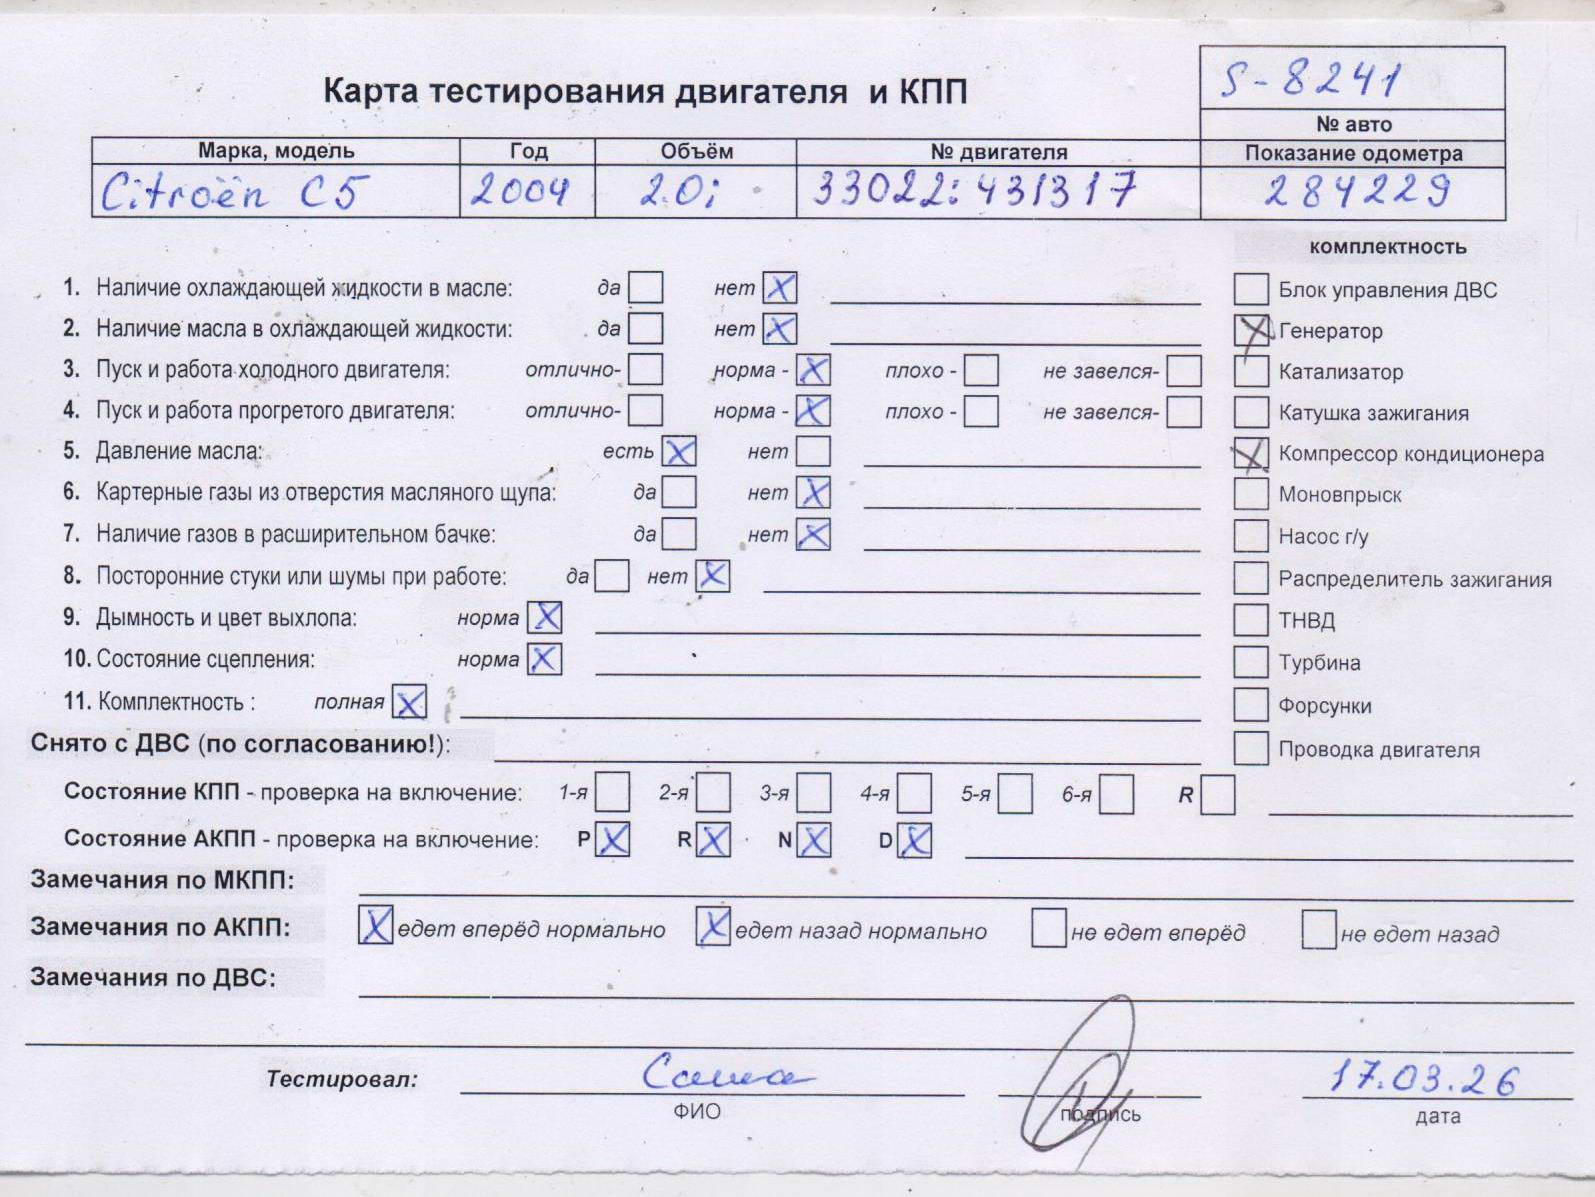 S-8241
Карта тестирования двигателя и КПП
№ авто
Марка, модель Год Объём № двигателя Показание одометра
Citroën C5 2004 2.0i 33022:431317 284229
комплектность
1. Наличие охлаждающей жидкости в масле: да нет X
Блок управления ДВС
2. Наличие масла в охлаждающей жидкости: да нет X
X Генератор
3. Пуск и работа холодного двигателя: отлично- норма - X плохо - не завелся-
Катализатор
4. Пуск и работа прогретого двигателя: отлично- норма - X плохо - не завелся-
Катушка зажигания
5. Давление масла: есть X нет
X Компрессор кондиционера
6. Картерные газы из отверстия масляного щупа: да нет X
Моновпрыск
7. Наличие газов в расширительном бачке: да нет X
Насос г/у
8. Посторонние стуки или шумы при работе: да нет X
Распределитель зажигания
9. Дымность и цвет выхлопа: норма X
ТНВД
10. Состояние сцепления: норма X
Турбина
11. Комплектность : полная X
Форсунки
Снято с ДВС (по согласованию!):
Проводка двигателя
Состояние КПП - проверка на включение: 1-я 2-я 3-я 4-я 5-я 6-я R
Состояние АКПП - проверка на включение: P X R X N X D X
Замечания по МКПП:
Замечания по АКПП: X едет вперёд нормально X едет назад нормально не едет вперёд не едет назад
Замечания по ДВС:
Тестировал: Саша 17.03.26
ФИО подпись дата